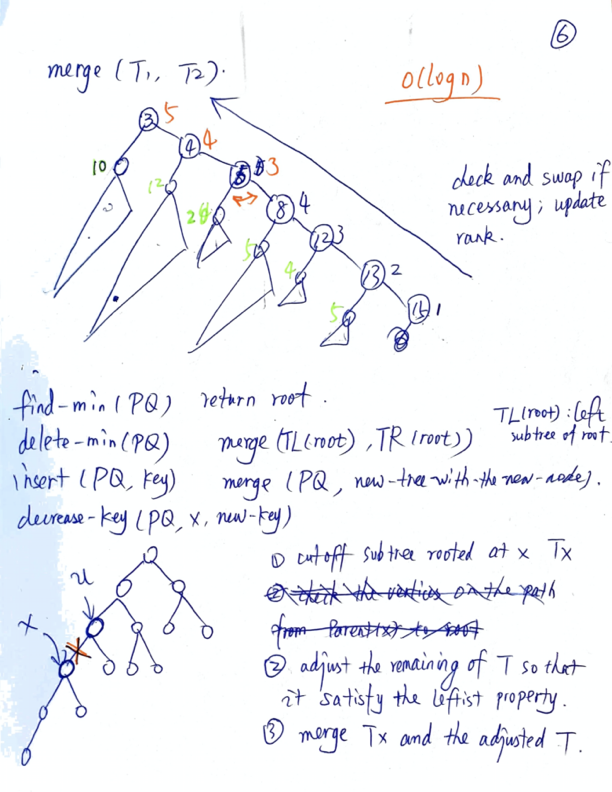 6
merge (T1, T2).
O(log n)
3 5
4 4
10
5 3
12
check and swap if
necessary; update
rank.
2
8 4
12 3
5
4
13 2
5
15 1
find-min (PQ) return root.
TL(root): left
subtree of root.
delete-min (PQ) merge (TL(root), TR(root))
insert (PQ, key) merge (PQ, new-tree-with-the-new-node).
decrease-key (PQ, x, new-key)
① cut off subtree rooted at x Tx
② check the vertices on the path
from Parent(x) to root
u
x
② adjust the remaining of T so that
it satisfy the leftist property.
③ merge Tx and the adjusted T.